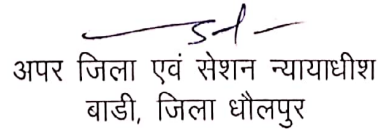 अपर जिला एवं सेशन न्यायाधीश
बाडी, जिला धौलपुर